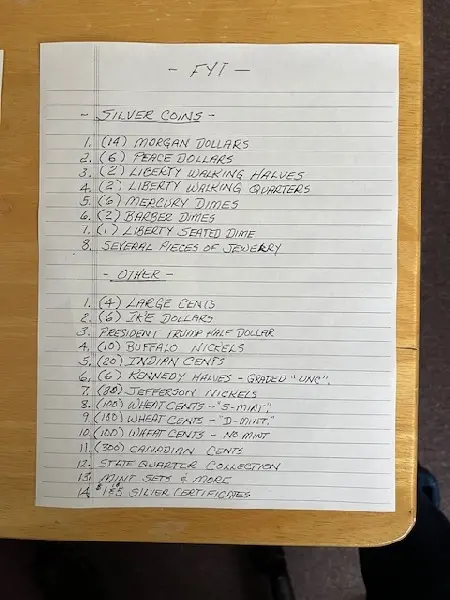 - FYI -
- SILVER COINS -
1. (14) MORGAN DOLLARS
2. (6) PEACE DOLLARS
3. (2) LIBERTY WALKING HALVES
4. (2) LIBERTY WALKING QUARTERS
5. (6) MERCURY DIMES
6. (2) BARBER DIMES
7. (1) LIBERTY SEATED DIME
8. SEVERAL PIECES OF JEWERRY
- OTHER -
1. (4) LARGE CENTS
2. (6) IKE DOLLARS
3. PRESIDENT TRUMP HALF DOLLAR
4. (10) BUFFALO NICKELS
5. (20) INDIAN CENTS
6. (6) KENNEDY HALVES - GRADED "UNC".
7. JEFFERSON NICKELS
8. (100) WHEAT CENTS - "S-MINT."
9. WHEAT CENTS - "D-MINT."
10. (100) WHEAT CENTS - NO MINT
11. (300) CANADIAN CENTS
12. STATE QUARTER COLLECTION
13. MINT SETS & MORE
14. SILVER CERTIFICATES